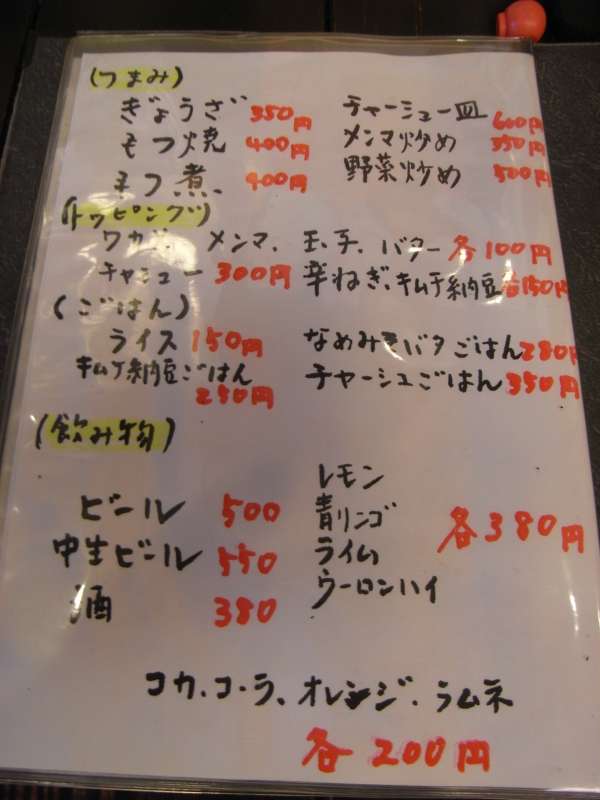 (つまみ)
ぎょうざ 350円 チャーシュー皿 600円
もつ焼 400円 メンマ炒め 350円
もつ煮 400円 野菜炒め 500円
(トッピング)
ワカメ、メンマ、玉子、バター 各100円
チャシュー 300円 辛ねぎ、キムチ納豆 各150円
(ごはん)
ライス 150円 なめみそバタごはん 280円
キムチ納豆ごはん 250円 チャーシュごはん 350円
(飲み物)
ビール 500
中生ビール 550
酒 380
レモン
青リンゴ
ライム
ウーロンハイ
各380円
コカ・コ・ラ、オレンジ、ラムネ
各200円